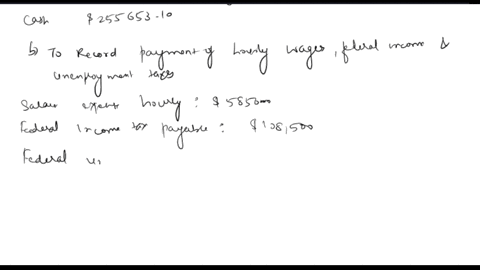 Cash $255653.10
b) To Record payment of hourly wages, federal income &
unemployment taxes
Salaries expense hourly : $585000
Federal Income tax payable : $108,500
Federal un